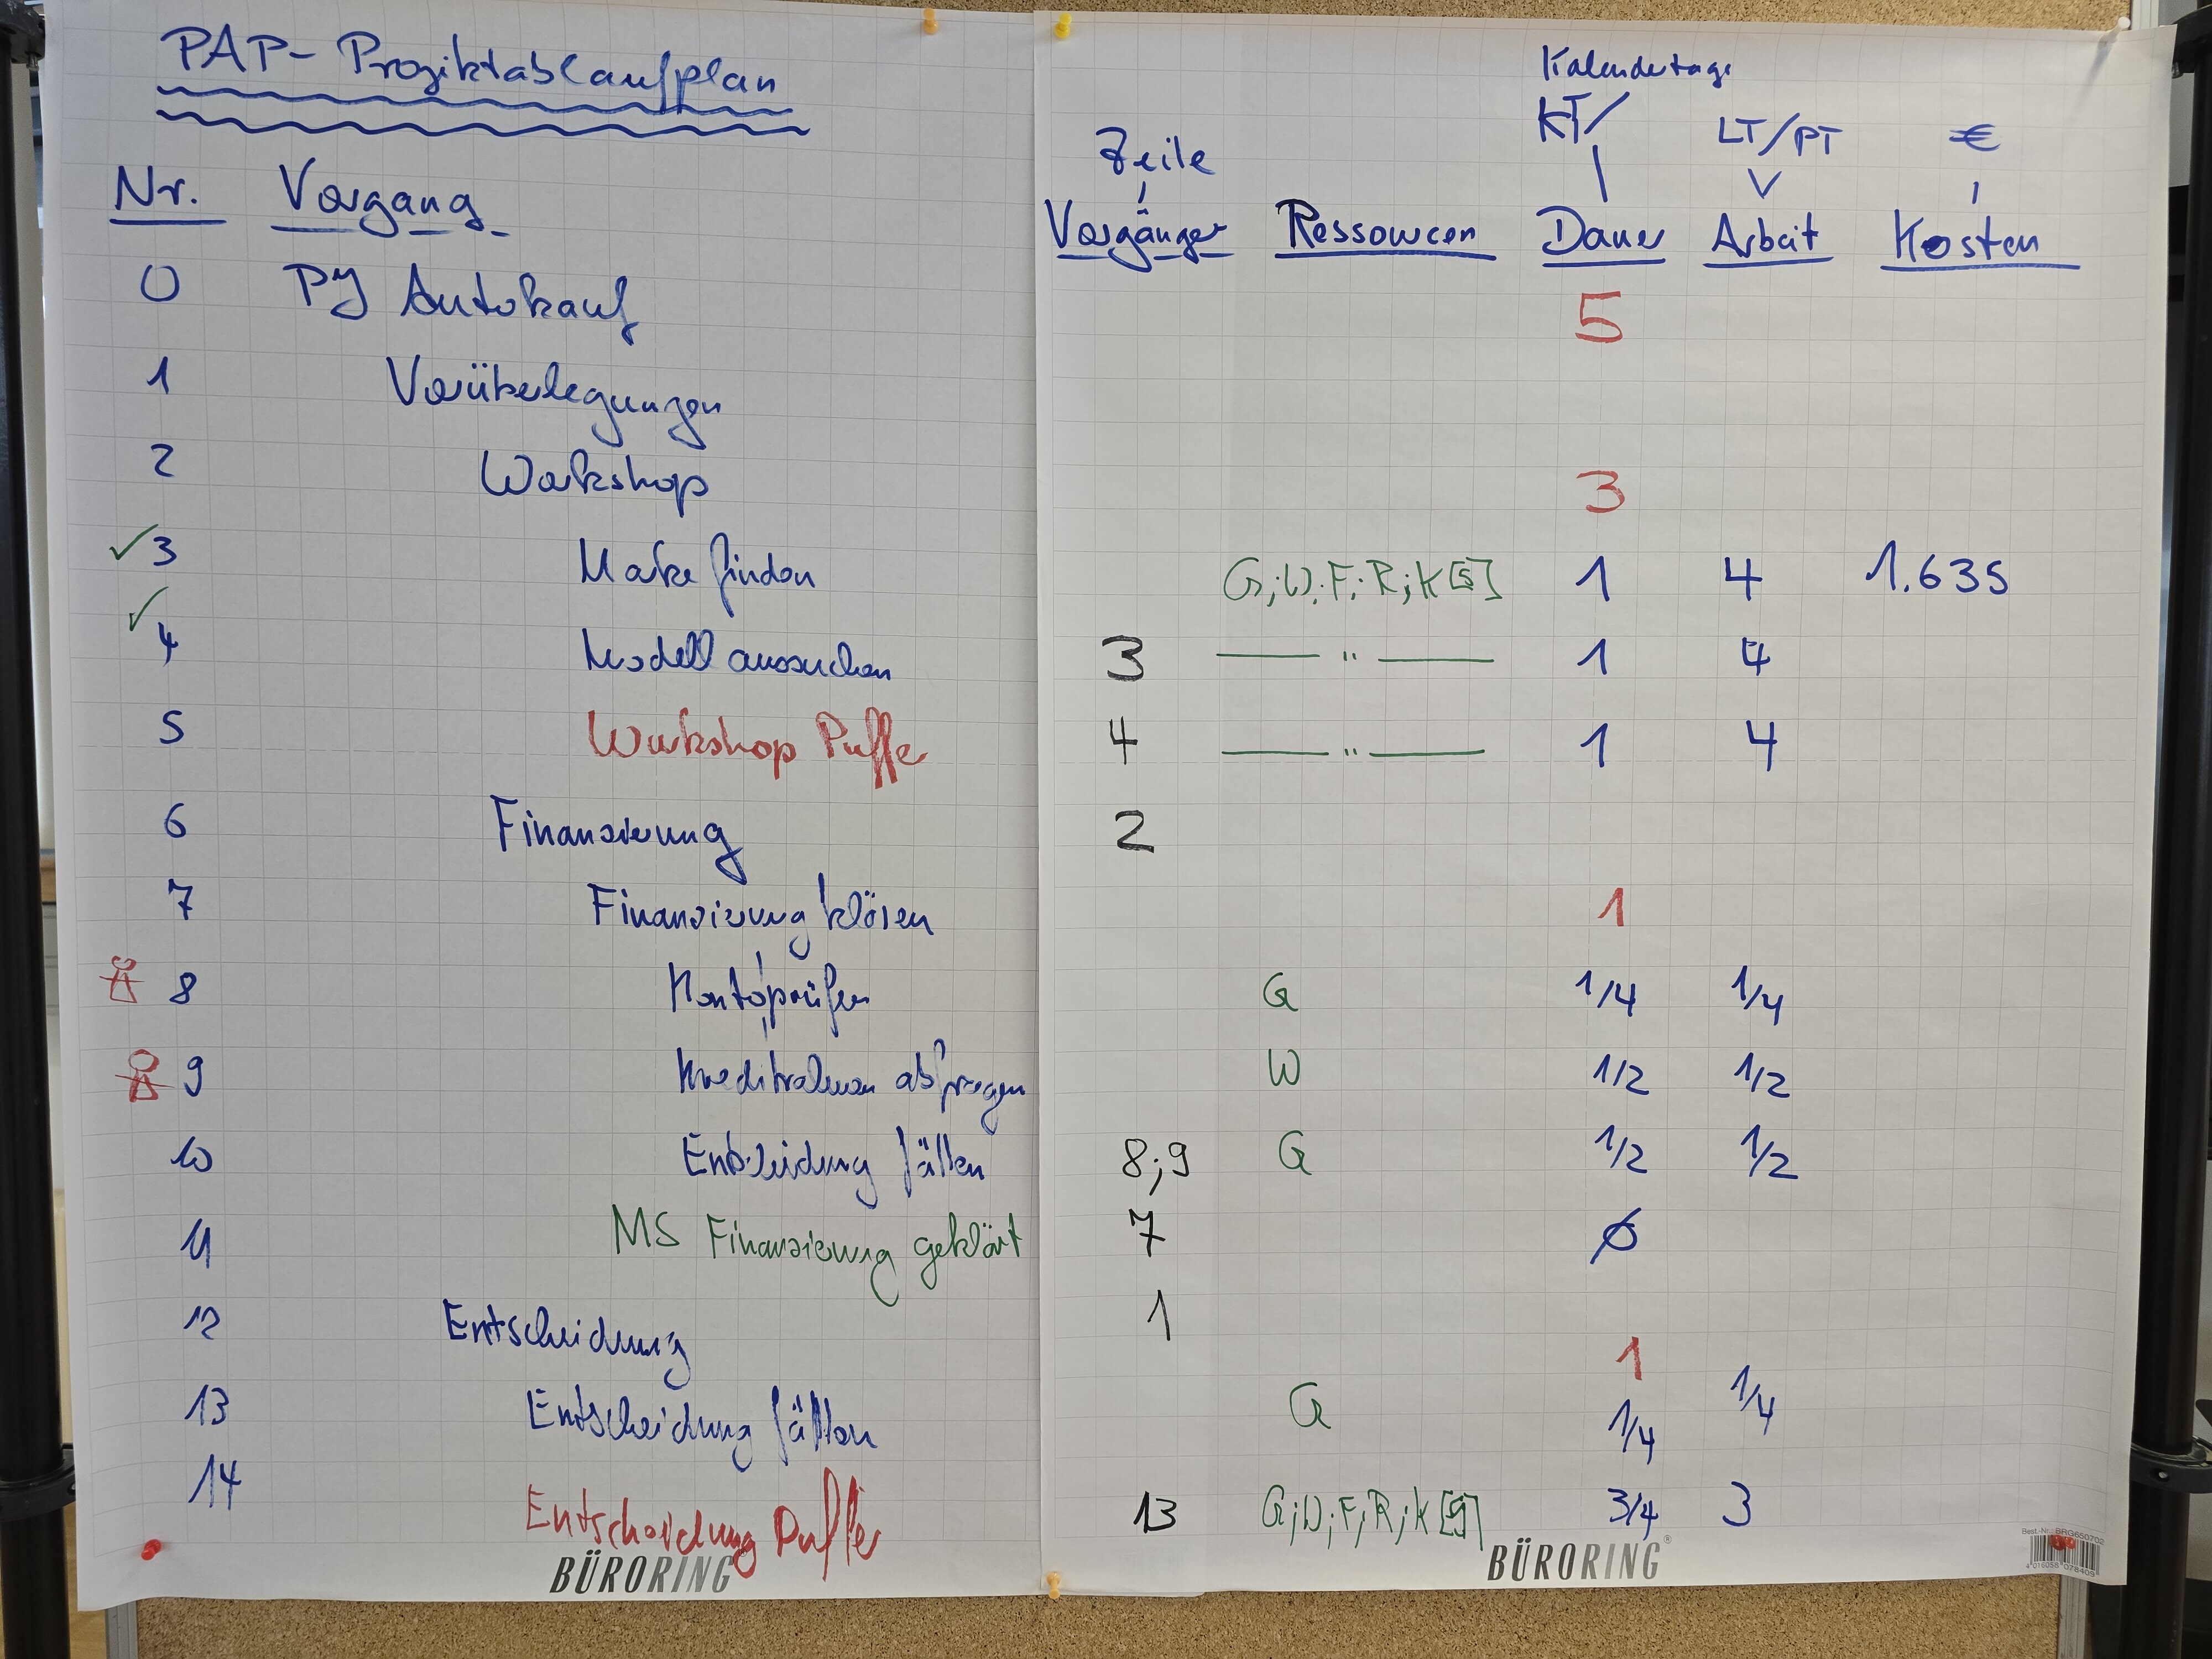 PAP- Projektablaufplan
Kalendertage
KT/
LT/PT
€
Zeile
Nr. Vorgang Vorgänger Ressourcen Dauer Arbeit Kosten
0 PJ Autokauf 5
1 Vorüberlegungen
2 Workshop 3
✓ 3 Marke finden G; W; F; R; K[5] 1 4 1.635
✓ 4 Modell aussuchen 3 — " — 1 4
5 Workshop Puffer 4 — " — 1 4
6 Finanzierung 2
7 Finanzierung klären 1
8 Konto prüfen G 1/4 1/4
9 Kreditrahmen abfragen W 1/2 1/2
10 Entscheidung fällen 8;9 G 1/2 1/2
11 MS Finanzierung geklärt 7 0
12 Entscheidung 1 1
13 Entscheidung fällen G 1/4 1/4
14 Entscheidung Puffer 13 G; W; F; R; K 3/4 3
BÜRORING
BÜRORING®
Best.-Nr.: BRG650702
4 016058 078409